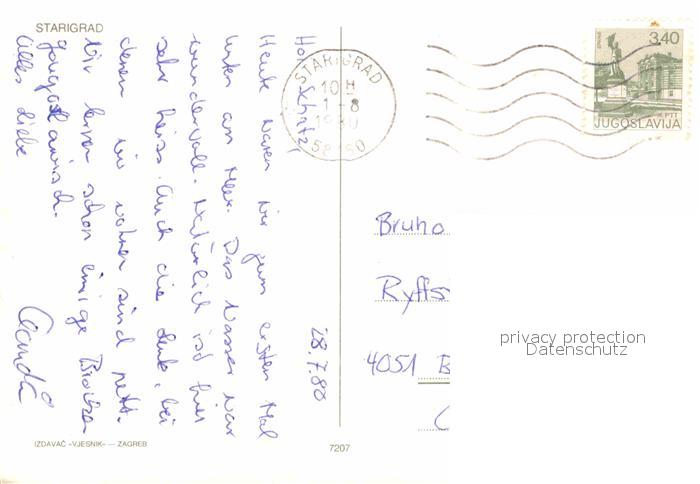 STARIGRAD
28.7.80
Hoi Schatz,
Heute waren wir zum ersten Mal
unten am Meer. Das Wasser war
wundervoll. Natürlich ist hier
sehr heiss. Auch die Leute, bei
denen wir wohnen sind nett.
Wir lernen schon einige Brocken
jougoslawisch.
Alles Liebe
STARIGRAD
10H
1-8
1980
3,40
JUGOSLAVIJA
PTT
Bruno
Ryffs
4051 B
privacy protection
Datenschutz
IZDAVAČ »VJESNIK« — ZAGREB
7207